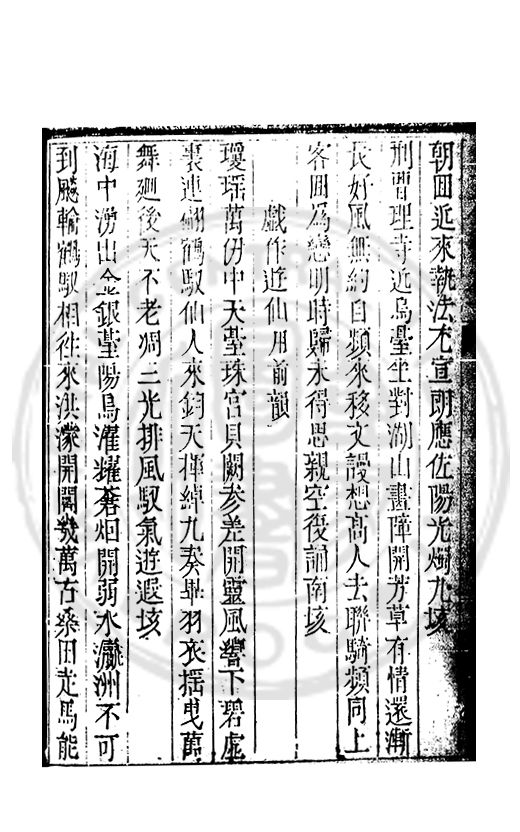 朝回近來執法尤宣朗應佐陽光燭九垓
刑曹理寺近烏臺坐對湖山畫障開芳草有情還漸
長好風無約自頻來移文謾想高人去聯騎頻同上
客回為戀明時歸未得思親空復誦南垓
戲作遊仙用前韻
瓊瑤萬仞中天臺珠宮貝闕參差開靈風響下碧虛
裏連翩鶴馭仙人來鈞天揮綽九奏畢羽衣揺曳萬
舞廻後天不老凋三光排風馭氣遊遐垓
海中湧出金銀臺陽烏濯耀蒼烟開弱水瀛洲不可
到飈輪鶴馭相徃來洪濛開闢幾萬古桑田走馬能